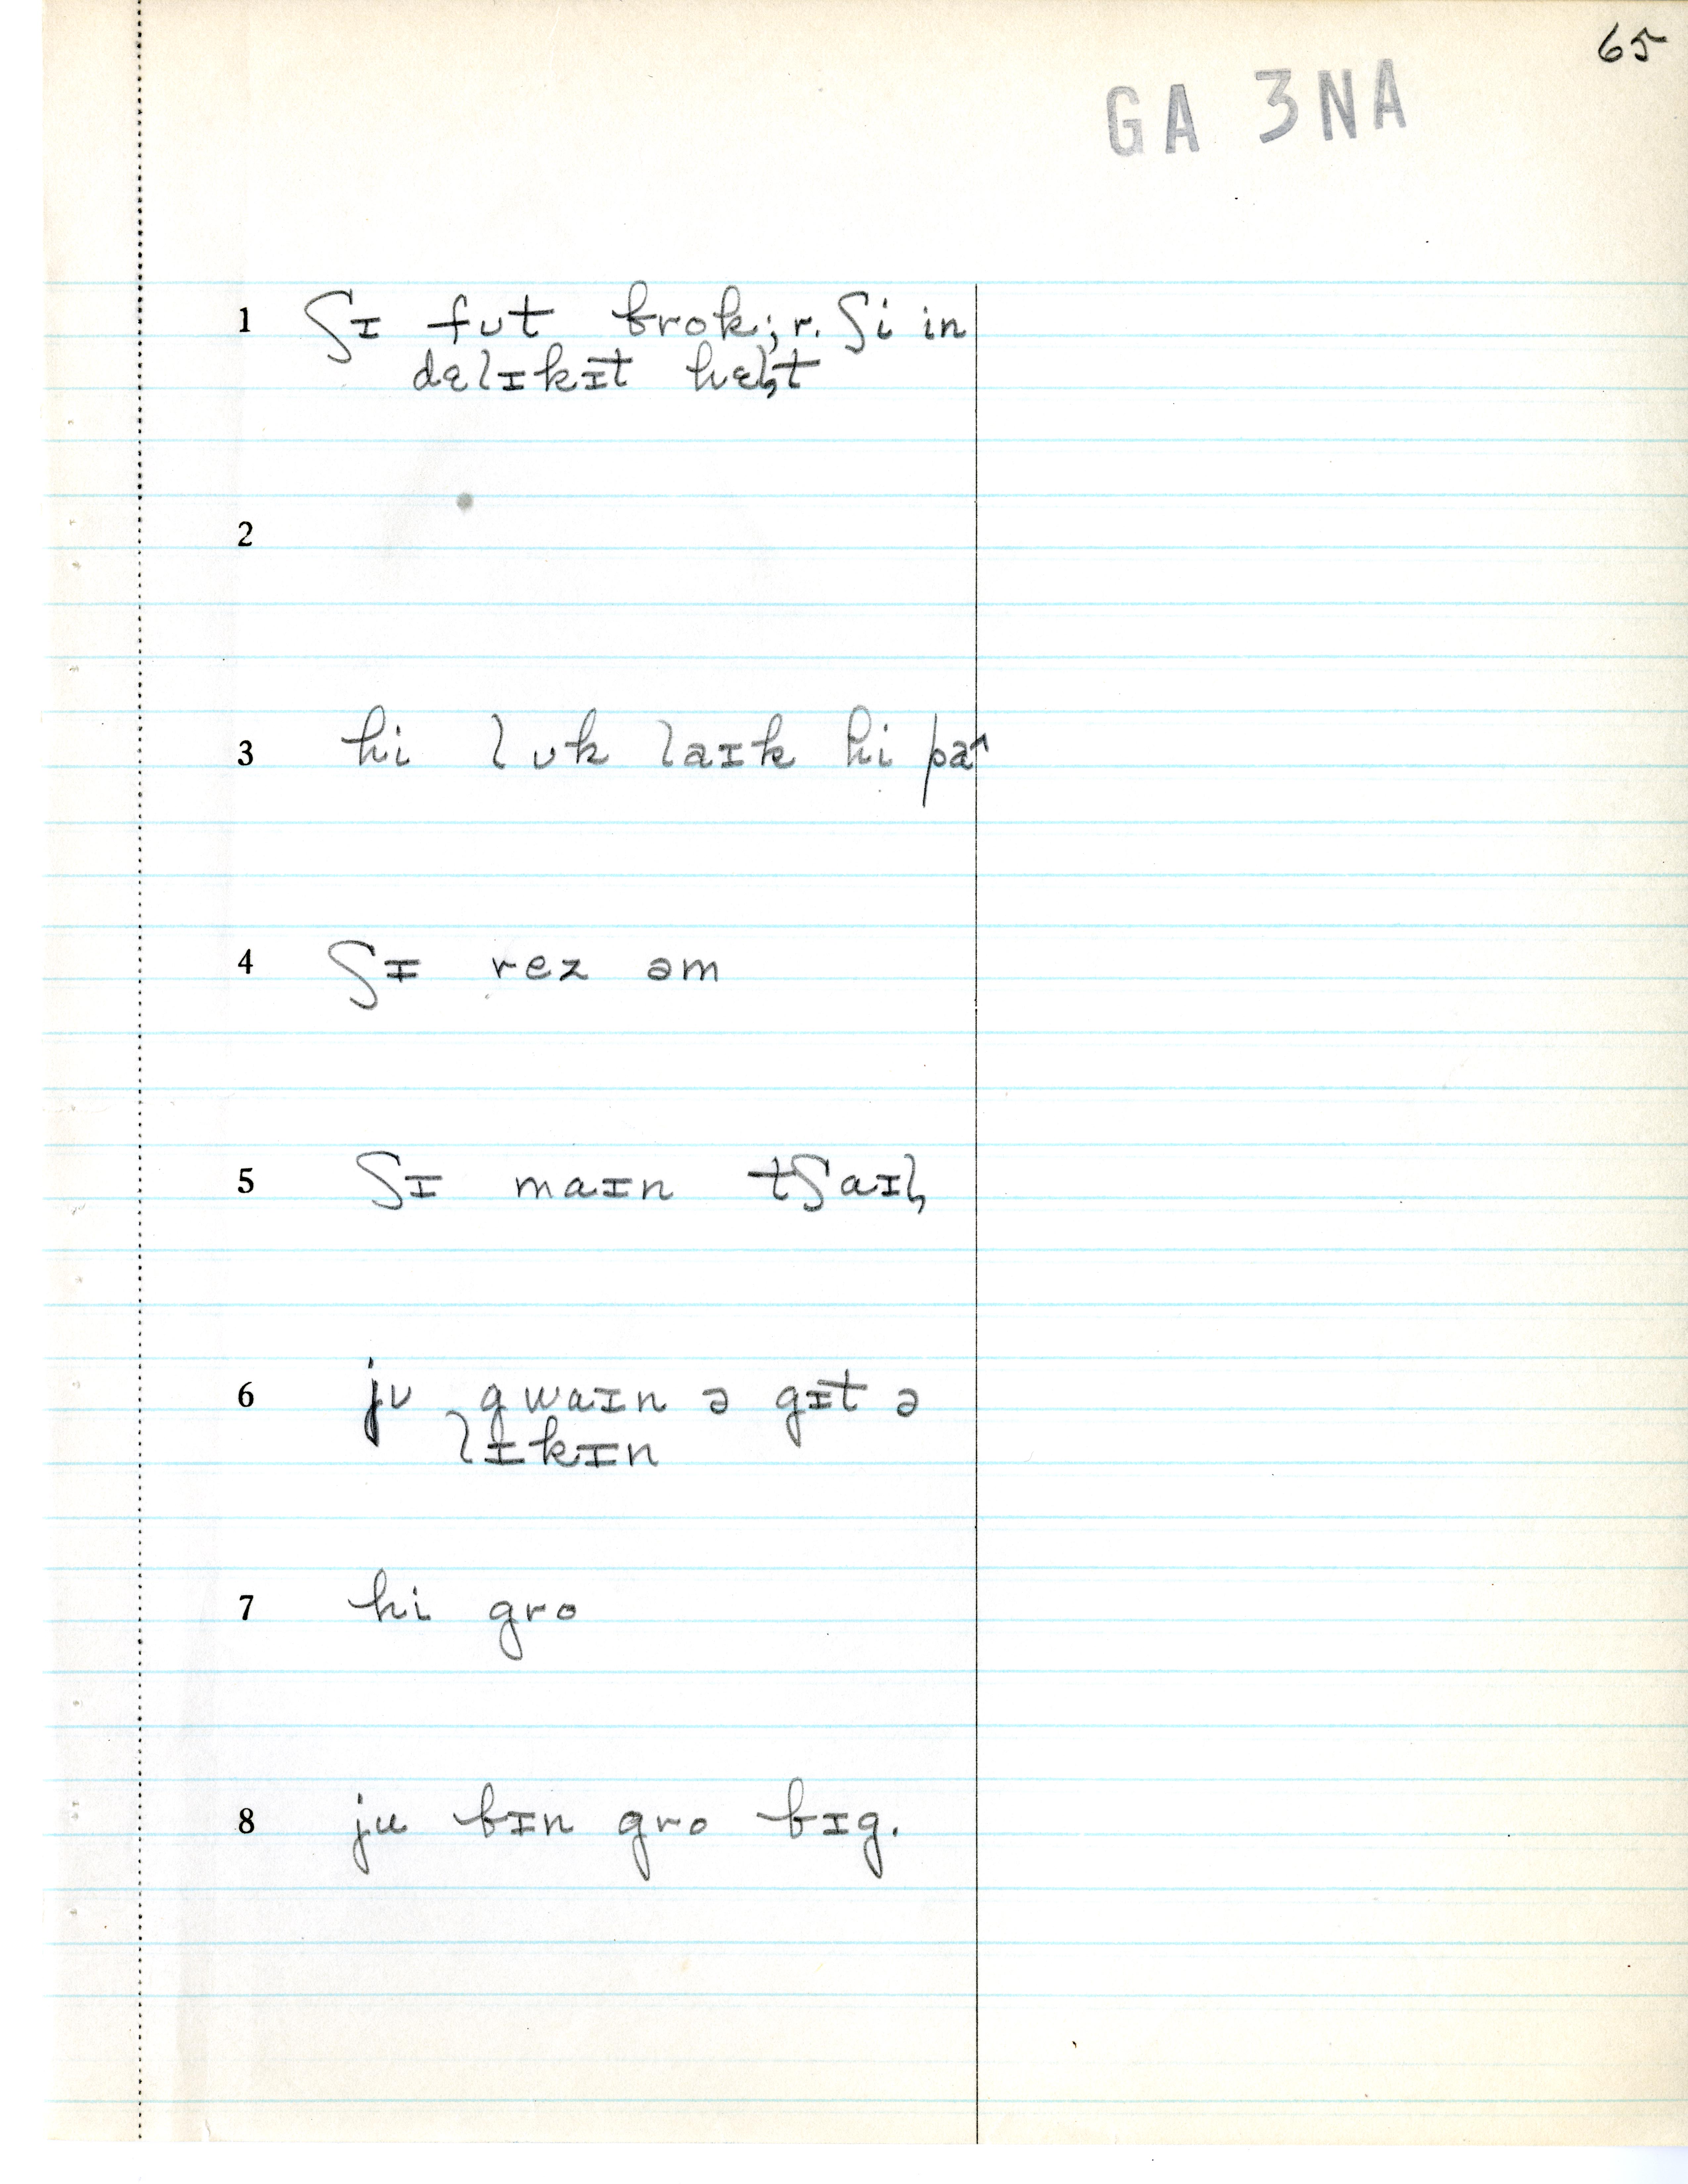 65
GA 3NA
1 ʃɪ fʊt brok; r. ʃi in
dɛlɪkɪt hɛl̥t
2
3 hi lʊk laɪk hi pa^
4 ʃɪ rez əm
5 ʃɪ maɪn tʃaɪl̥
6 jʊ gwaɪn ə gɪt ə
lɪkɪn
7 hi gro
8 ju bɪn gro bɪg.